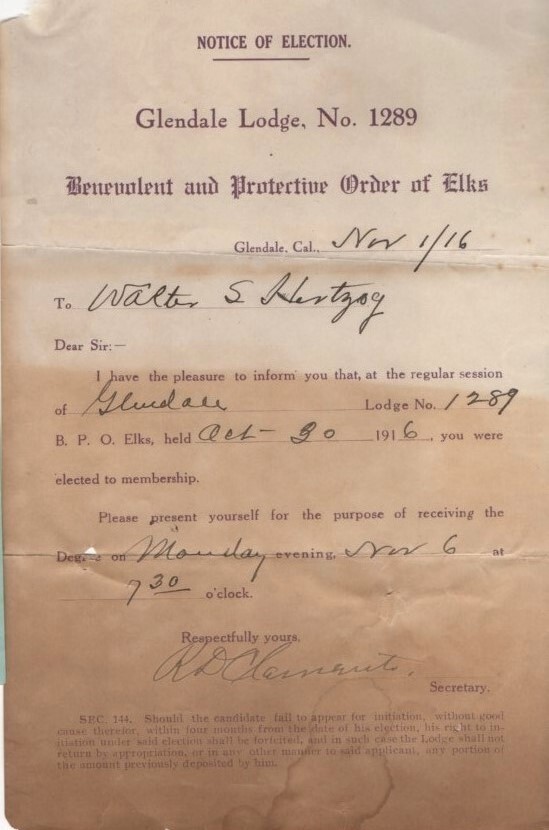 NOTICE OF ELECTION.
Glendale Lodge, No. 1289
Benevolent and Protective Order of Elks
Glendale, Cal., Nov 1/16
To Walter S Hertzog
Dear Sir:—
I have the pleasure to inform you that, at the regular session
of Glendale Lodge No. 1289
B. P. O. Elks, held Oct - 30 1916, you were
elected to membership.
Please present yourself for the purpose of receiving the
Degree on Monday evening, Nov 6 at
7 30 o'clock.
Respectfully yours,
R D Clements,
Secretary.
SEC. 144. Should the candidate fail to appear for initiation, without good
cause therefor, within four months from the date of his election, his right to in-
itiation under said election shall be forfeited, and in such case the Lodge shall not
return by appropriation, or in any other manner to said applicant, any portion of
the amount previously deposited by him.